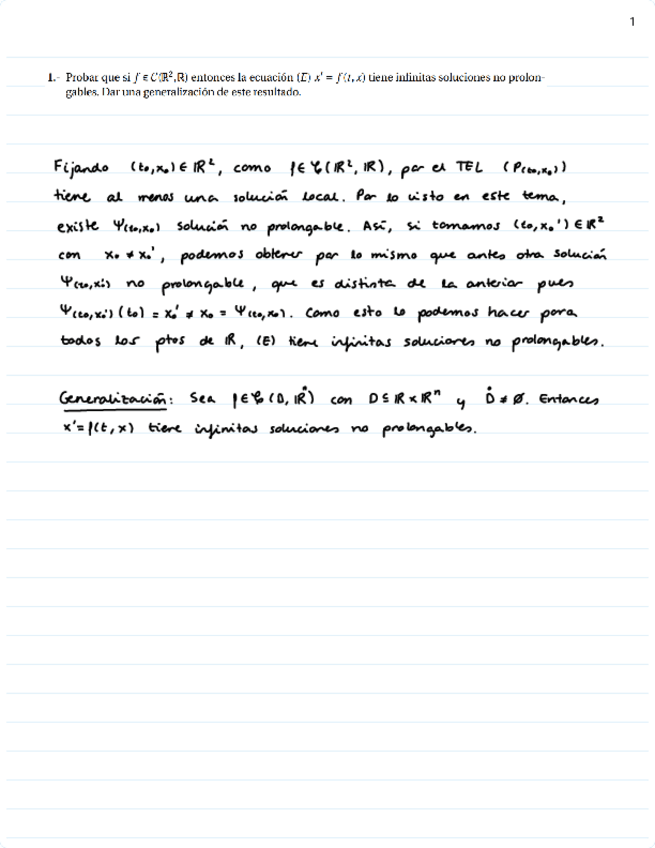 1
1.- Probar que si f ∈ C(ℝ²,ℝ) entonces la ecuación (E) x' = f(t,x) tiene infinitas soluciones no prolon-
gables. Dar una generalización de este resultado.
Fijando (t₀,x₀) ∈ ℝ², como f ∈ 𝒞(ℝ², ℝ), por el TEL (P(t₀,x₀))
tiene al menos una solución local. Por lo visto en este tema,
existe Ψ(t₀,x₀) solución no prolongable. Así, si tomamos (t₀,x₀') ∈ ℝ²
con x₀ ≠ x₀', podemos obtener por lo mismo que antes otra solución
Ψ(t₀,x₀') no prolongable, que es distinta de la anterior pues
Ψ(t₀,x₀')(t₀) = x₀' ≠ x₀ = Ψ(t₀,x₀). Como esto lo podemos hacer para
todos los ptos de ℝ, (E) tiene infinitas soluciones no prolongables.
Generalización: Sea f ∈ 𝒞(D, ℝⁿ) con D ⊆ ℝ × ℝⁿ y D̊ ≠ ∅. Entonces
x' = f(t,x) tiene infinitas soluciones no prolongables.